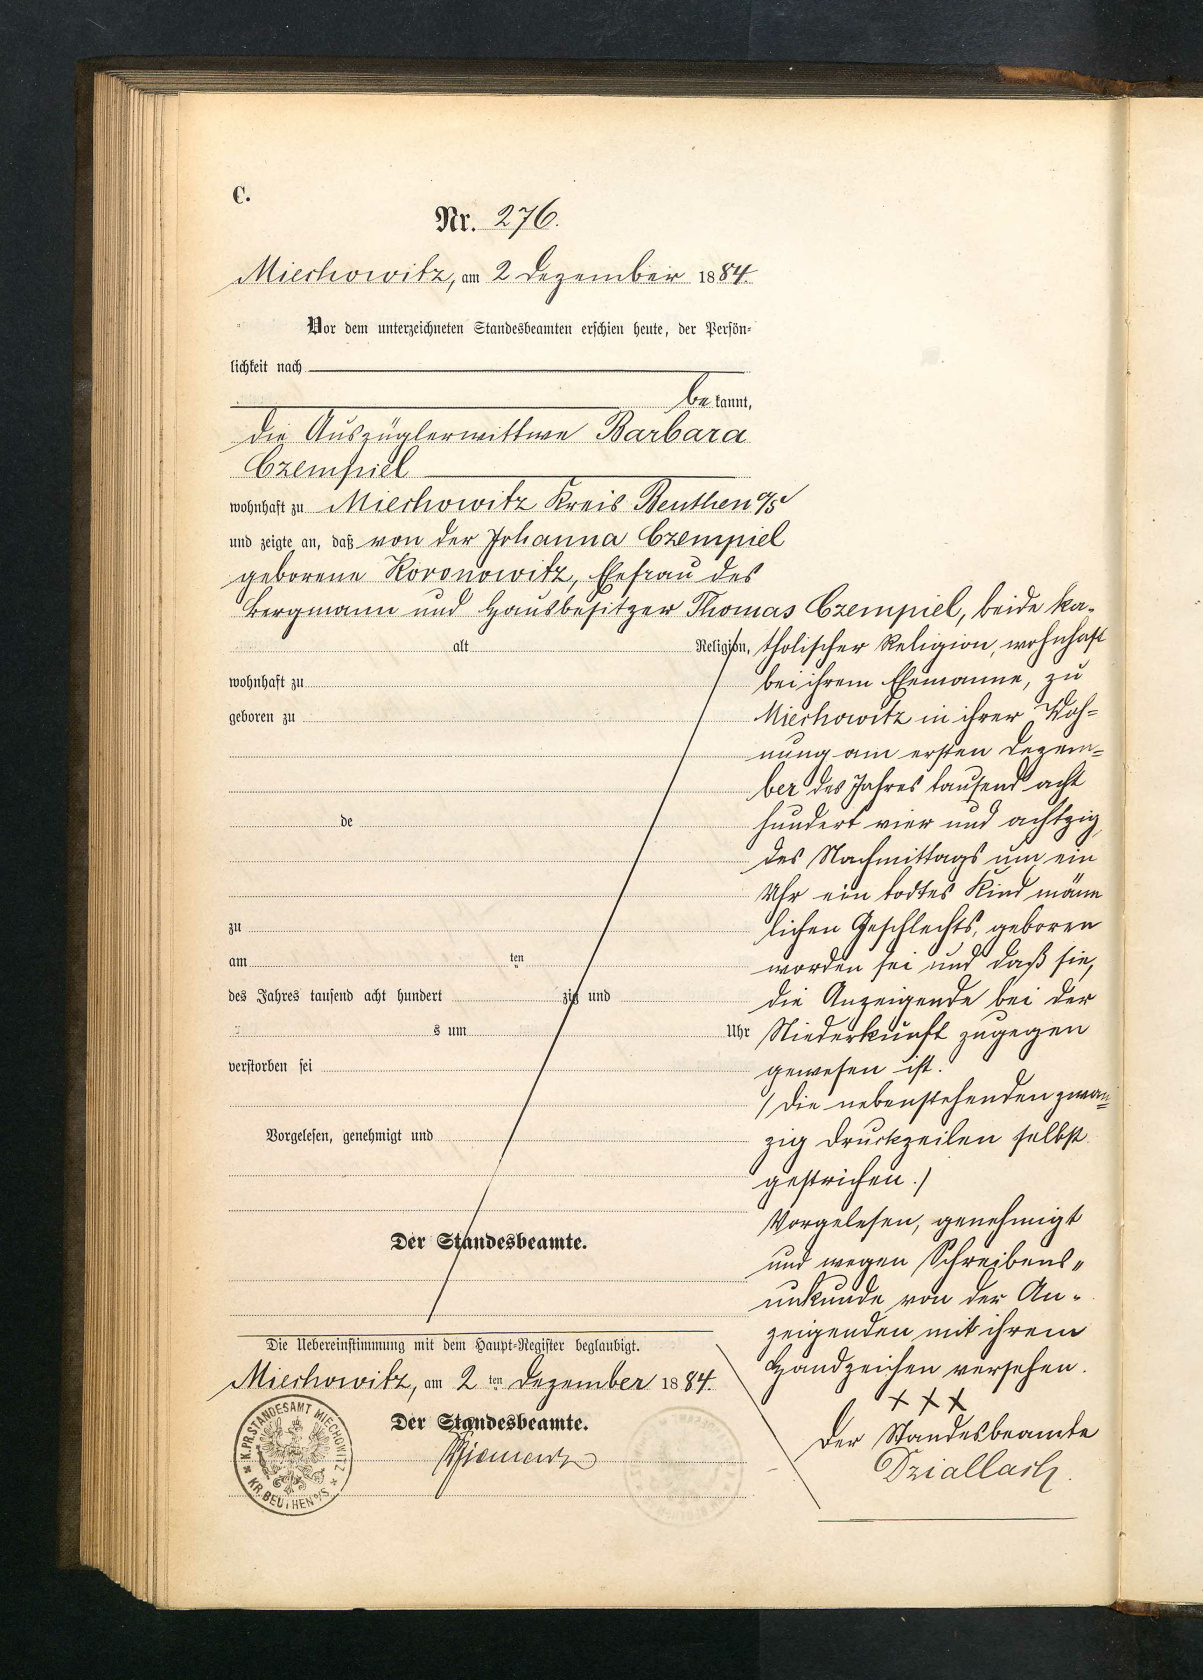 C.
Nr. 276.
Miechowitz, am 2 Dezember 1884.
Vor dem unterzeichneten Standesbeamten erschien heute, der Persön-
lichkeit nach
bekannt,
die Auszüglerwittwe Barbara
Czempiel
wohnhaft zu Miechowitz Kreis Beuthen o/S
und zeigte an, daß von der Johanna Czempiel
geborene Koronowitz, Ehefrau des
Bergmann und Hausbesitzer Thomas Czempiel, beide ka-
alt Religion, tholischer Religion, wohnhaft
wohnhaft zu bei ihrem Ehemanne, zu
geboren zu Miechowitz in ihrer Woh-
nung am ersten Dezem-
ber des Jahres tausend acht
de hundert vier und achtzig,
des Nachmittags um ein
Uhr ein todtes Kind männ
zu lichen Geschlechts, geboren
am ten worden sei und daß sie,
des Jahres tausend acht hundert zig und die Anzeigende bei der
s um Uhr Niederkunft zugegen
verstorben sei gewesen ist.
/Die nebenstehenden zwan-
Vorgelesen, genehmigt und zig Druckzeilen selbst
gestrichen./
Vorgelesen, genehmigt
Der Standesbeamte. und wegen Schreibens-
unkunde von der An-
zeigenden mit ihrem
Die Uebereinstimmung mit dem Haupt-Register beglaubigt.
Handzeichen versehen.
Miechowitz, am 2 ten Dezember 1884.
+++
Der Standesbeamte.
Der Standesbeamte
Dziallach.
K. PR. STANDESAMT MIECHOWITZ
KR. BEUTHEN O/S